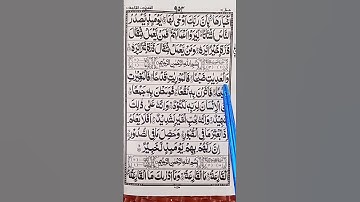 ٩٥٣
اَخْبَارَهَا ۙ بِاَنَّ رَبَّكَ اَوْحٰى لَهَا ؕ يَوْمَئِذٍ يَّصْدُرُ
النَّاسُ اَشْتَاتًا ۙ لِّيُرَوْا اَعْمَالَهُمْ ؕ فَمَنْ يَّعْمَلْ مِثْقَالَ
ذَرَّةٍ خَيْرًا يَّرَهٗ ؕ وَمَنْ يَّعْمَلْ مِثْقَالَ ذَرَّةٍ شَرًّا يَّرَهٗ
بِسْمِ اللّٰهِ الرَّحْمٰنِ الرَّحِيْمِ
وَالْعٰدِيٰتِ ضَبْحًا ۙ فَالْمُوْرِيٰتِ قَدْحًا ۙ فَالْمُغِيْرٰتِ
صُبْحًا ۙ فَاَثَرْنَ بِهٖ نَقْعًا ۙ فَوَسَطْنَ بِهٖ جَمْعًا ۙ
اِنَّ الْاِنْسَانَ لِرَبِّهٖ لَكَنُوْدٌ ۚ وَاِنَّهٗ عَلٰى ذٰلِكَ
لَشَهِيْدٌ ۚ وَاِنَّهٗ لِحُبِّ الْخَيْرِ لَشَدِيْدٌ ؕ اَفَلَا يَعْلَمُ
اِذَا بُعْثِرَ مَا فِى الْقُبُوْرِ ۙ وَحُصِّلَ مَا فِى الصُّدُوْرِ ۙ
اِنَّ رَبَّهُمْ بِهِمْ يَوْمَئِذٍ لَّخَبِيْرٌ
بِسْمِ اللّٰهِ الرَّحْمٰنِ الرَّحِيْمِ
اَلْقَارِعَةُ ۙ مَا الْقَارِعَةُ ۚ وَمَاۤ اَدْرٰىكَ مَا الْقَارِعَةُ